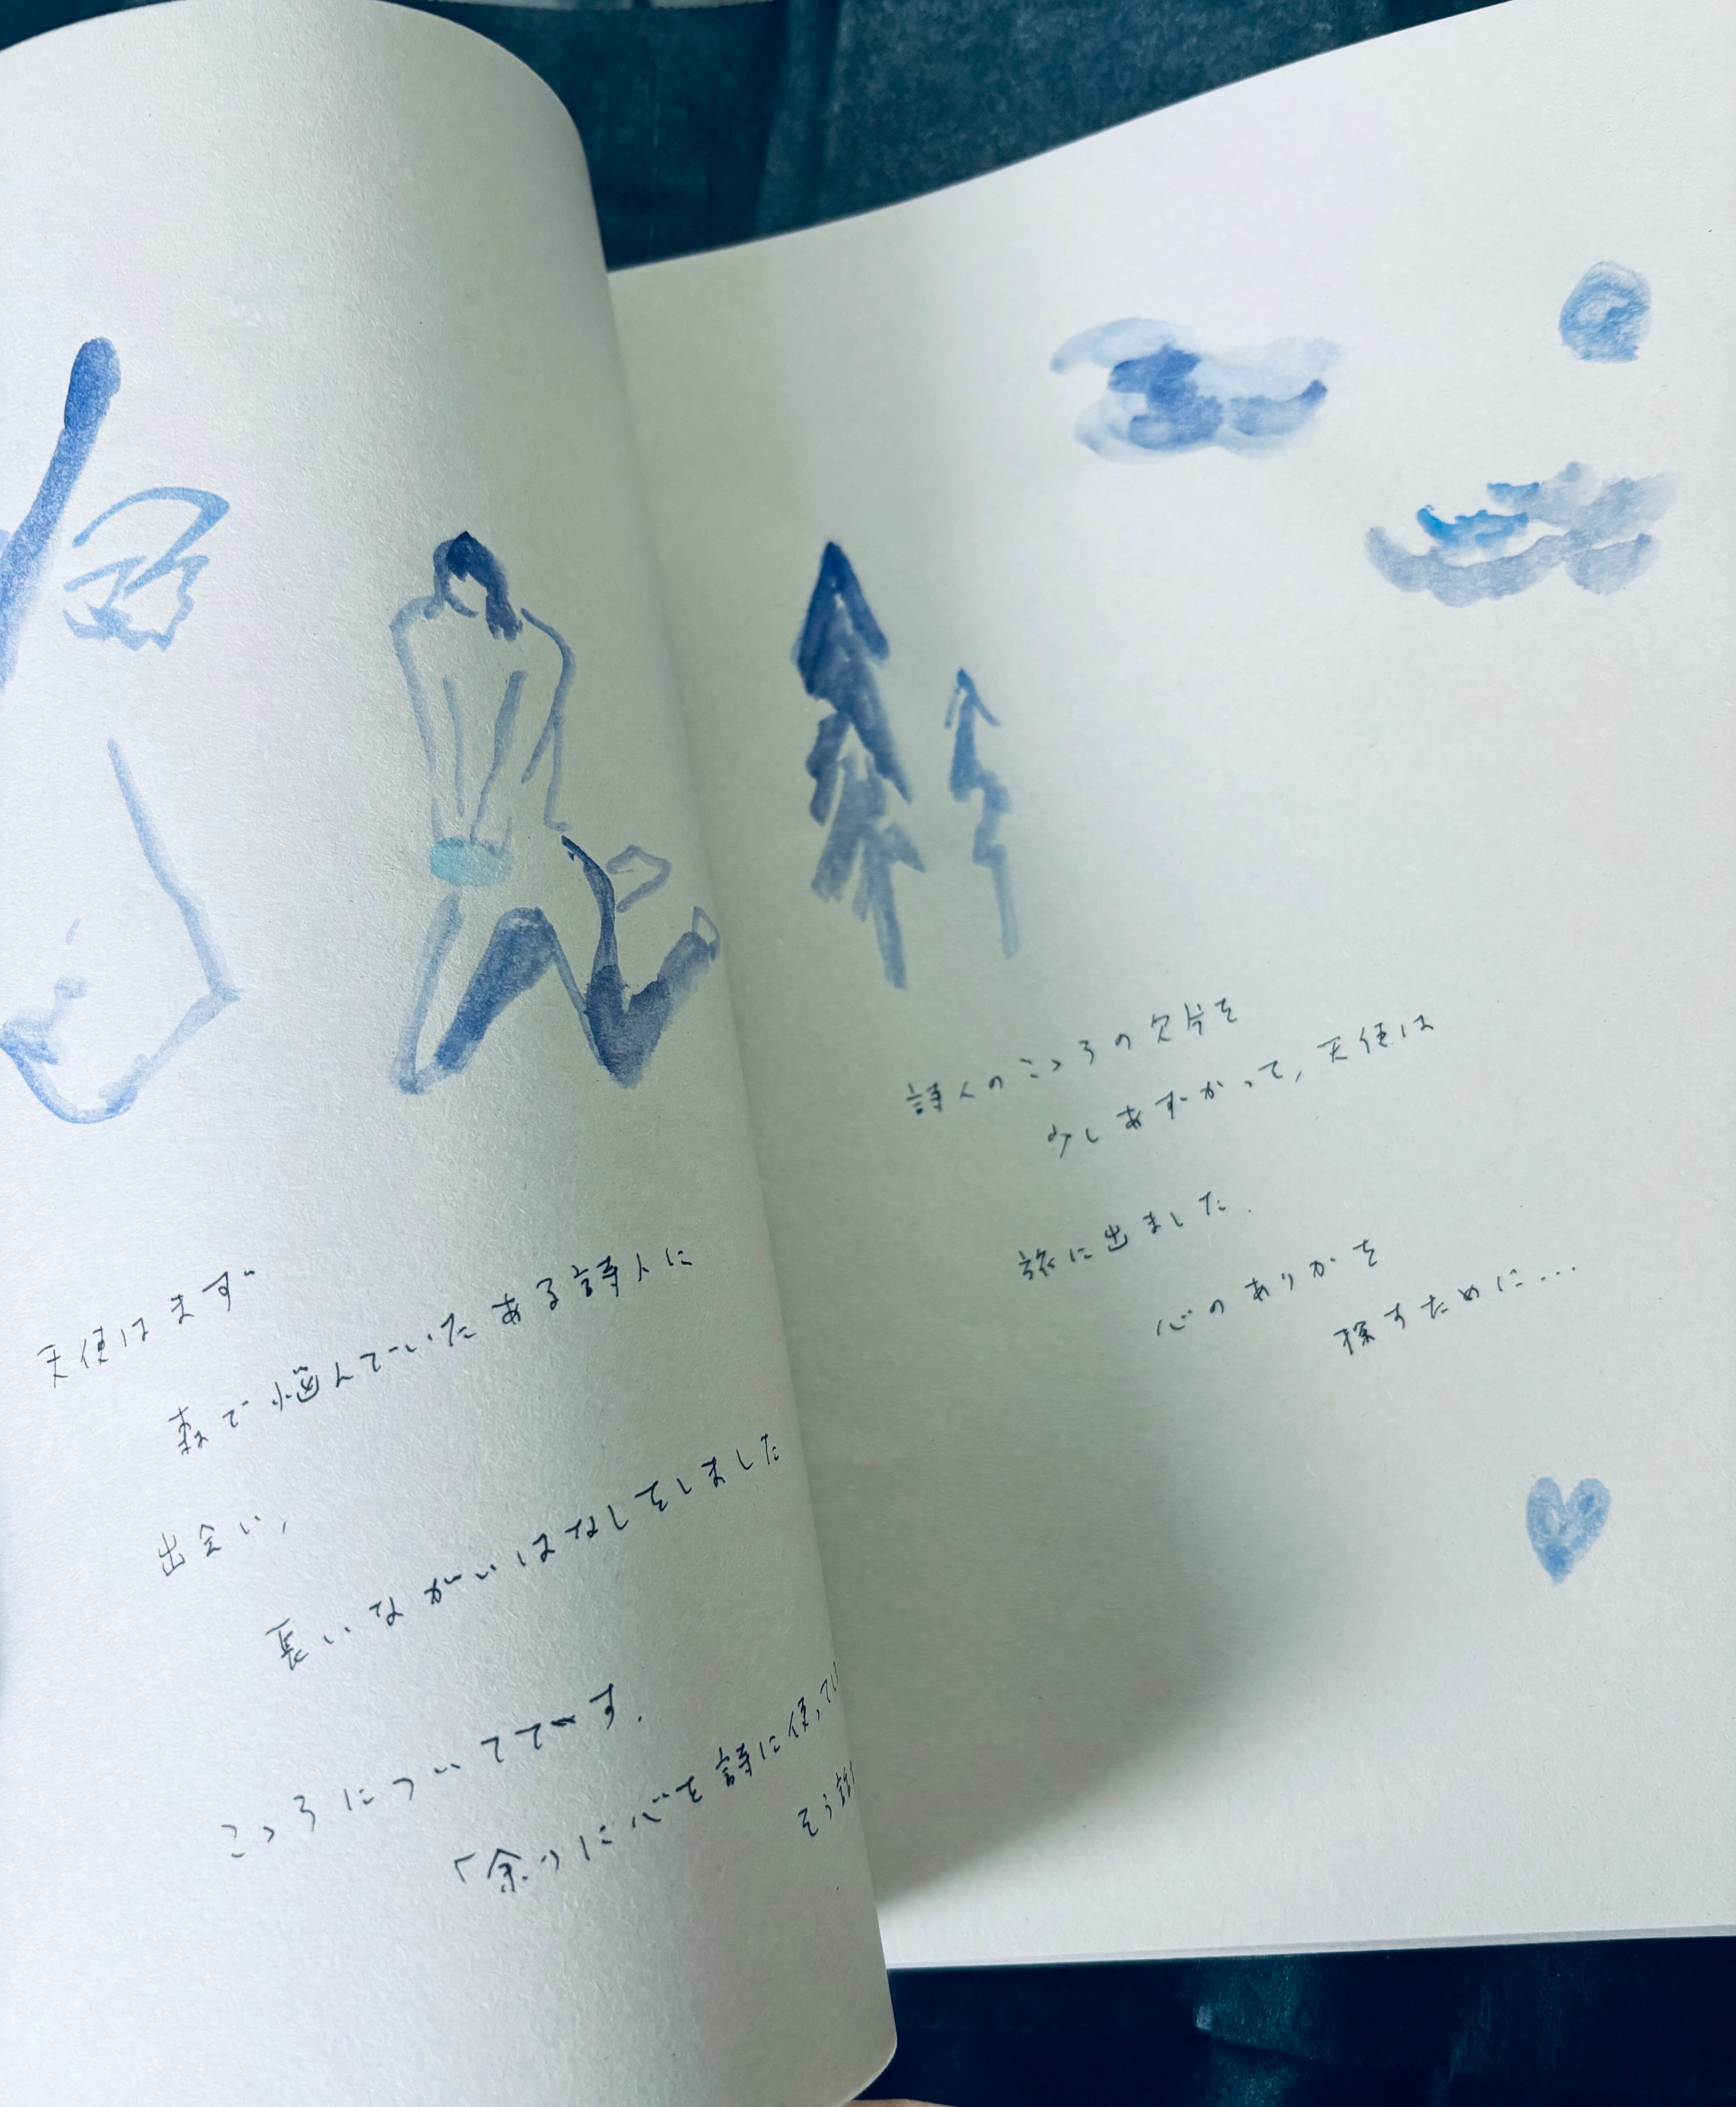 天使はまず
森で悩んでいたある詩人に
出会い,
長いながいはなしをしました
こころについてです.
「余りに心を詩に使って
そう
詩人のこころの欠片を
少しあずかって,天使は
旅に出ました.
心のありかを
探すために...